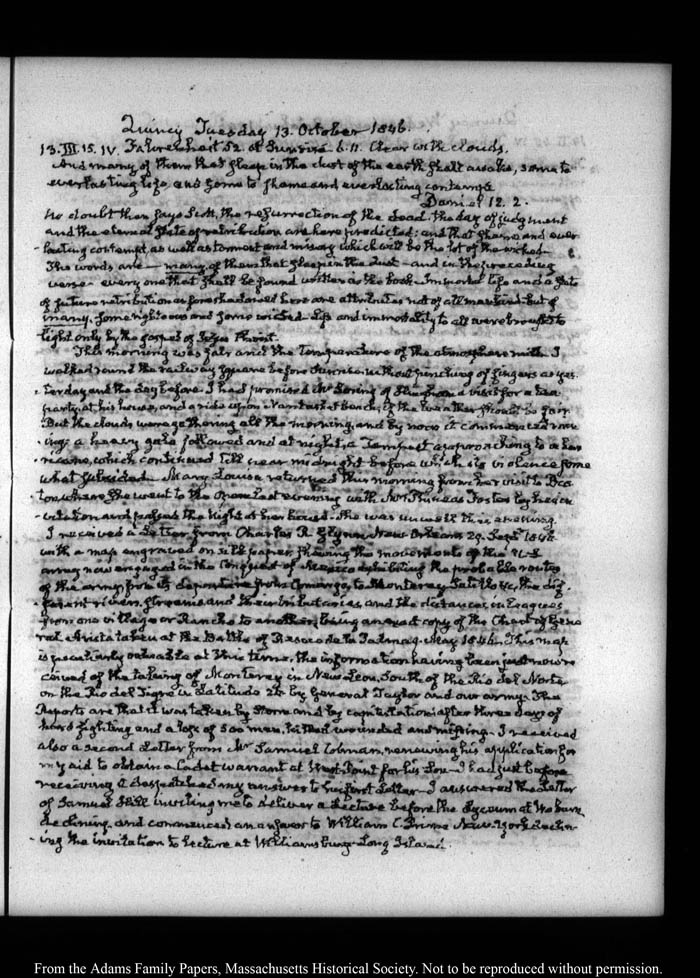 Quincy Tuesday 13. October 1846.
13. III. 15. IV. Fahrenheit 52. at Sunrise 6.11. Clear with clouds.
And many of them that sleep in the dust of the earth shall awake, some to
everlasting life, and some to shame and everlasting contempt
Daniel 12. 2.
No doubt then says Scott, the resurrection of the dead. the day of judgment
and the eternal state of retribution are here predicted: and that shame and ever
lasting contempt, as well as torment and misery which will be the lot of the wicked.
The words are— many of them that sleep in the dust—and in the preceding
verse— every one that shall be found written in the book. Immortal life and a state
of future retribution as foreshadowed here are attributes not of all mankind but of
many, some righteous and some wicked. life and immortality to all were brought to
light only by the gospel of Jesus Christ.
This morning was fair and the temperature of the atmosphere mild. I
walked round the railway square before Sunrise without pinching of fingers as yes
terday and the day before. I had promised Mr Loring of Hingham a visit for a tea
party at his house, and a ride upon Nantasket beach, if the weather should be fair.
But the clouds were gathering all the morning, and by noon it commenced
a heavy gale followed and at night, a Tempest approaching to a hur
ricane, which continued till near midnight before which its violence some
what subsided. Mary Louisa returned this morning from her visit to Bos
ton where she went to the Opera last evening with Mrs Phineas Foster by her in
vitation and passed the Night at her house. She was unwell this evening.
I received a Letter from Charles R. Glynn, New Orleans 29. Septr 1846
with a map engraved on silk paper, shewing the movements of the U.S.
army now engaged in the Conquest of Mexico exhibiting the probable routes
of the army from its departure from Camargo, to Monterey Saltillo &c, the dif
ferent rivers, streams and their tributaries, and the distances in Leagues
from one village or Rancho to another, being an exact copy of the Chart of Gene
ral Arista taken at the Battle of Resaca de la Palma 9. May 1846. This map
is peculiarly valuable at this time, the information having been just now re
ceived of the taking of Monterey in New Leon, South of the Rio del Norte
on the Rio del Tigre in Latitude by General Taylor and our army. The
Reports are that it was taken by Storm and by capitulation after three days of
hard fighting and a loss of 500 men, killed wounded and missing. I received
also a second Letter from Mr Samuel Colman, renewing his application for
my aid to obtain a Cadet warrant at West Point for his Son. I had just before
receiving it despatched my answer to his first Letter. I answered the Letter
of Samuel inviting me to deliver a Lecture before the Lyceum at Woburn,
declining, and commenced an answer to William C. Prime New-York declin
ing the invitation to lecture at Williamsburg. Long Island.
From the Adams Family Papers, Massachusetts Historical Society. Not to be reproduced without permission.